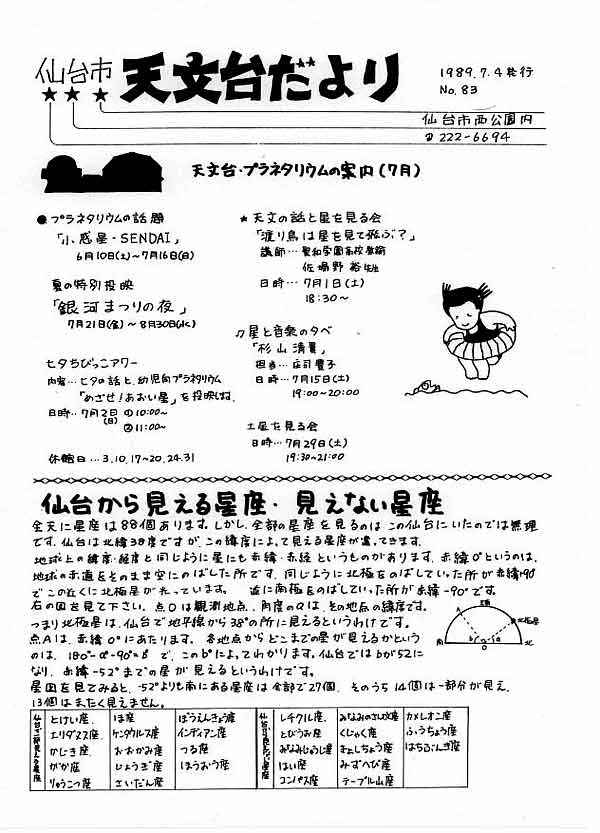 仙台市 天文台だより
1989.7.4発行
No.83
仙台市西公園内
☎222-6694
天文台・プラネタリウムの案内(7月)
●プラネタリウムの話題
「小惑星・SENDAI」
6月10日(土)~7月16日(日)
夏の特別投映
「銀河まつりの夜」
7月21日(金)~8月30日(水)
七夕ちびっこアワー
内容…七夕の話と、幼児向プラネタリウム
「めざせ!あおい星」を投映
日時…7月2日(日) ①10:00~
②11:00~
休館日…3.10.17~20.24.31
★天文の話と星を見る会
「渡り鳥は星を見て飛ぶ?」
講師…聖和学園高校教諭
佐場野 裕先生
日時…7月1日(土)
18:30~
♫星と音楽の夕べ
「杉山清貴」
担当…庄司豊子
日時…7月15日(土)
19:00~20:00
土星を見る会
日時…7月29日(土)
19:30~21:00
仙台から見える星座・見えない星座
全天に星座は88個あります。しかし、全部の星座を見るのは、この仙台にいたのでは無理
です。仙台は北緯38度ですが、この緯度によって見る星座が違ってきます。
地球上の緯度・経度と同じように星にも赤緯・赤経というものがあります。赤緯0°というのは、
地球の赤道をそのまま空にのばした所です。同じように北極をのばしていった所が赤緯+90°
でこの近くに北極星が光っています。逆に南極をのばしていった所が赤緯-90°です。
右の図を見て下さい。点Oは観測地点、角度のαは、その地点の緯度です。
つまり北極星は、仙台で地平線から38°の所に見えるというわけです。
点Aは、赤緯0°にあたります。各地点からどこまでの星が見えるかという
のは、180°-α-90°=b で、このb°によってわかります。仙台ではbが52に
なり、赤緯-52°までの星が見えるというわけです。
星図を見てみると、-52°よりも南にある星座は全部で27個、そのうち14個は一部分が見え、
13個はまったく見えません。
A
天頂
北極星
南
b
90°
α
O
北
とけい座
エリダヌス座
かじき座
がか座
りゅうこつ座
ほ座
ケンタウルス座
おおかみ座
じょうぎ座
さいだん座
ぼうえんきょう座
インディアン座
つる座
ほうおう座
レチクル座
とびうお座
みなみじゅうじ座
はい座
コンパス座
みなみのさんかく座
くじゃく座
きょしちょう座
みずへび座
テーブル山座
カメレオン座
ふうちょう座
はちぶんぎ座